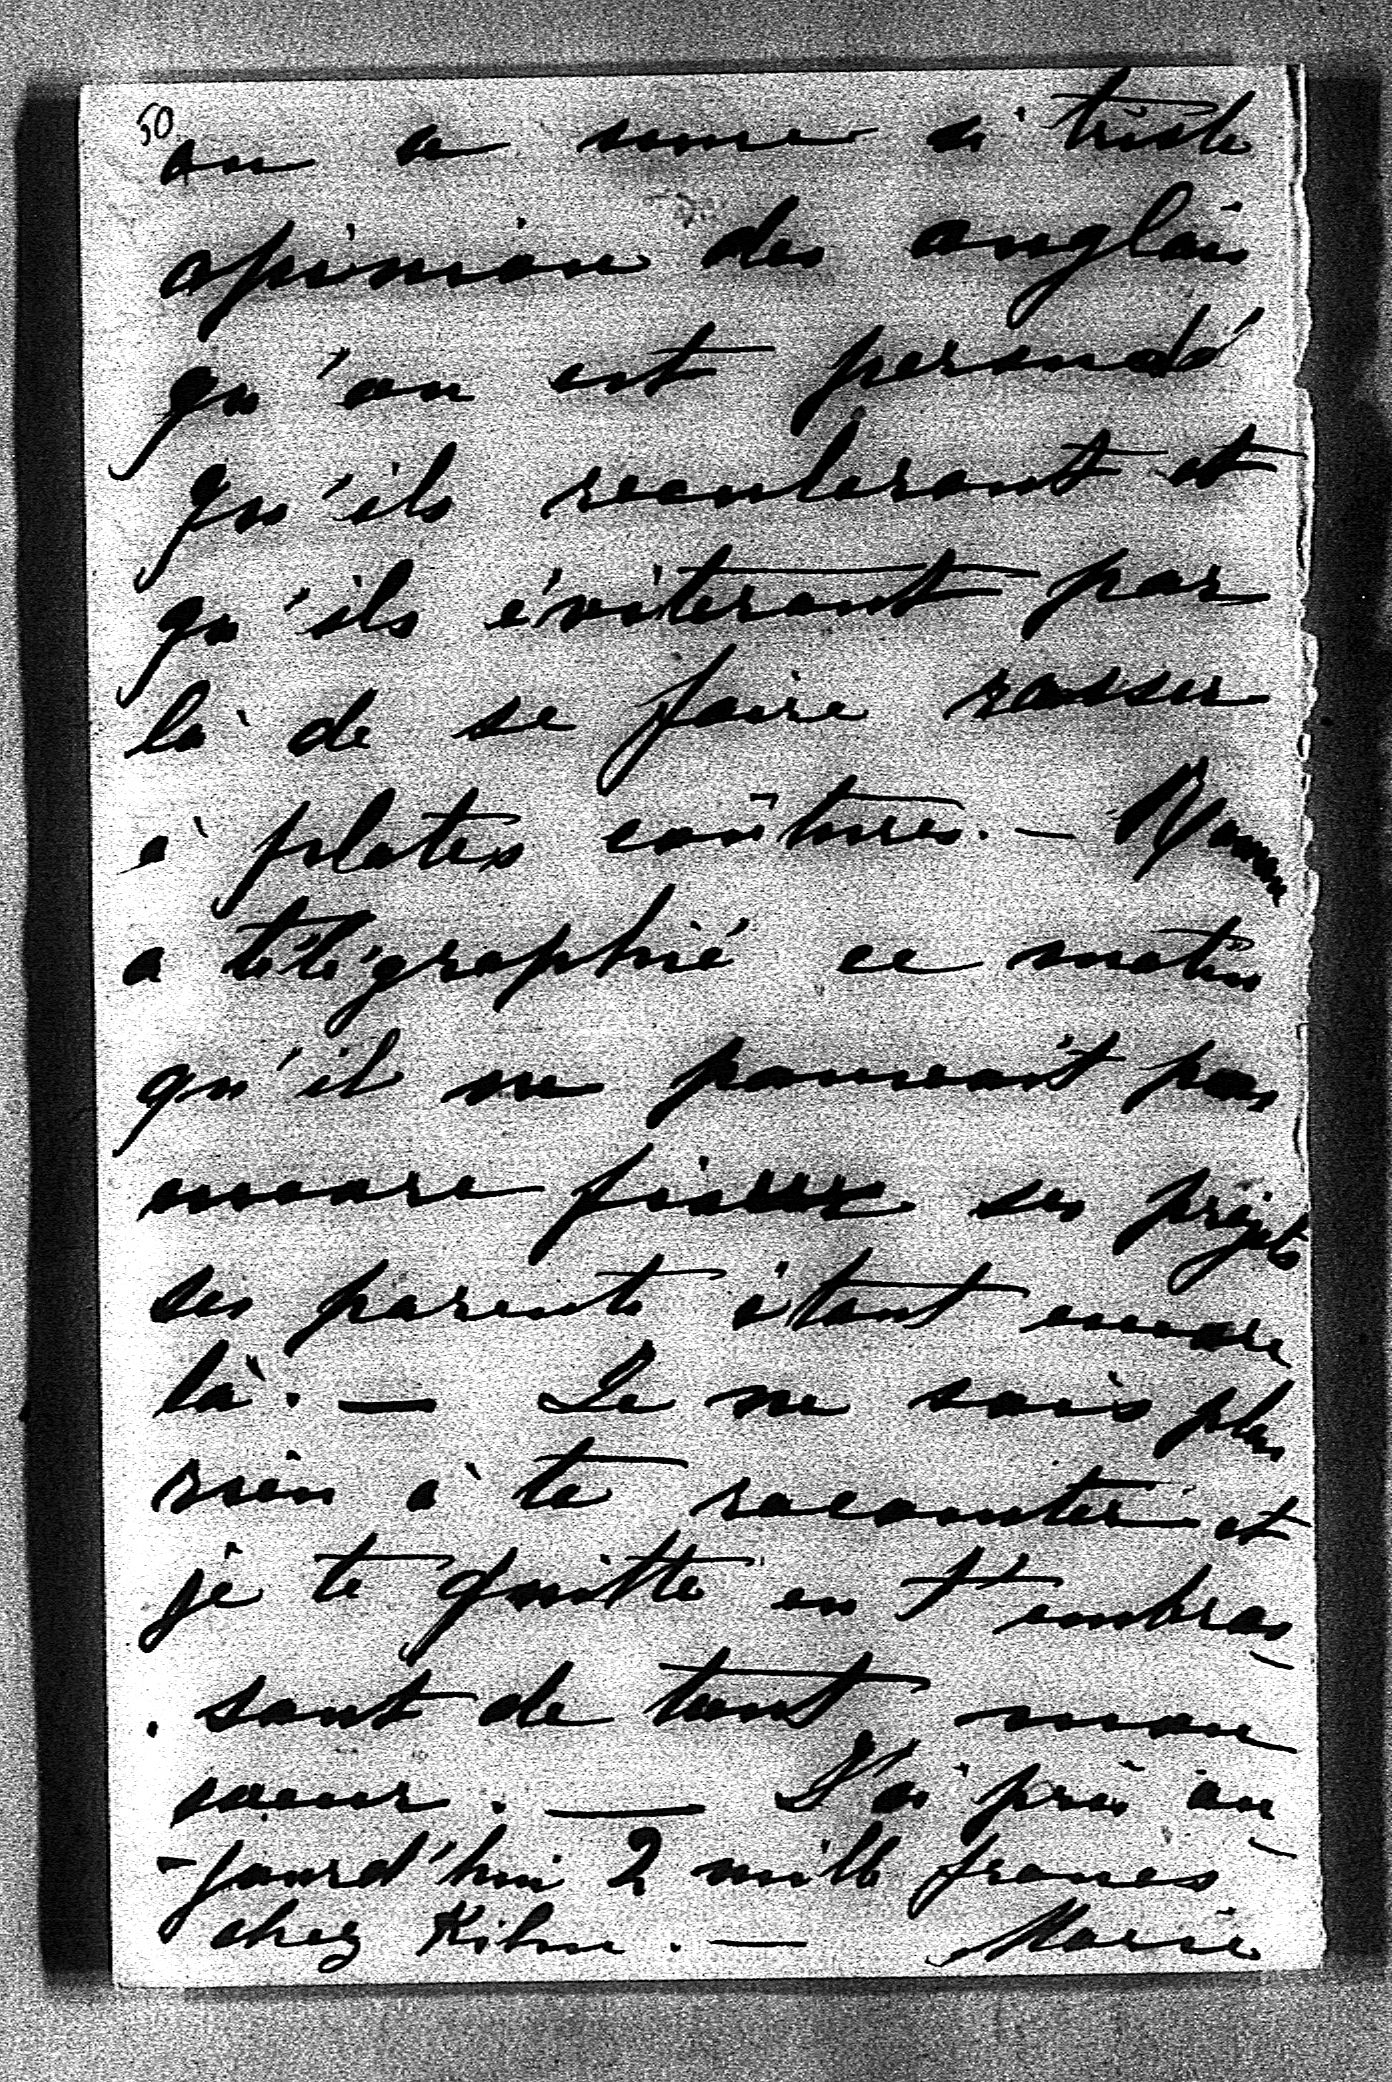 50
on a une si triste
opinion des anglais
qu'on est persuadé
qu'ils reculeront et
qu'ils éviteront par
là de se faire rosser
à plates coutures. —
a télégraphié ce matin
qu'il ne pouvait pas
encore fixer ses projets
ses parents étant encore
là. — Je ne sais plus
rien à te raconter et
je te quitte en t'embras-
sant de tout mon
coeur. — J'ai pris au-
-jourd'hui 2 mille francs
chez Kilm. — Marie